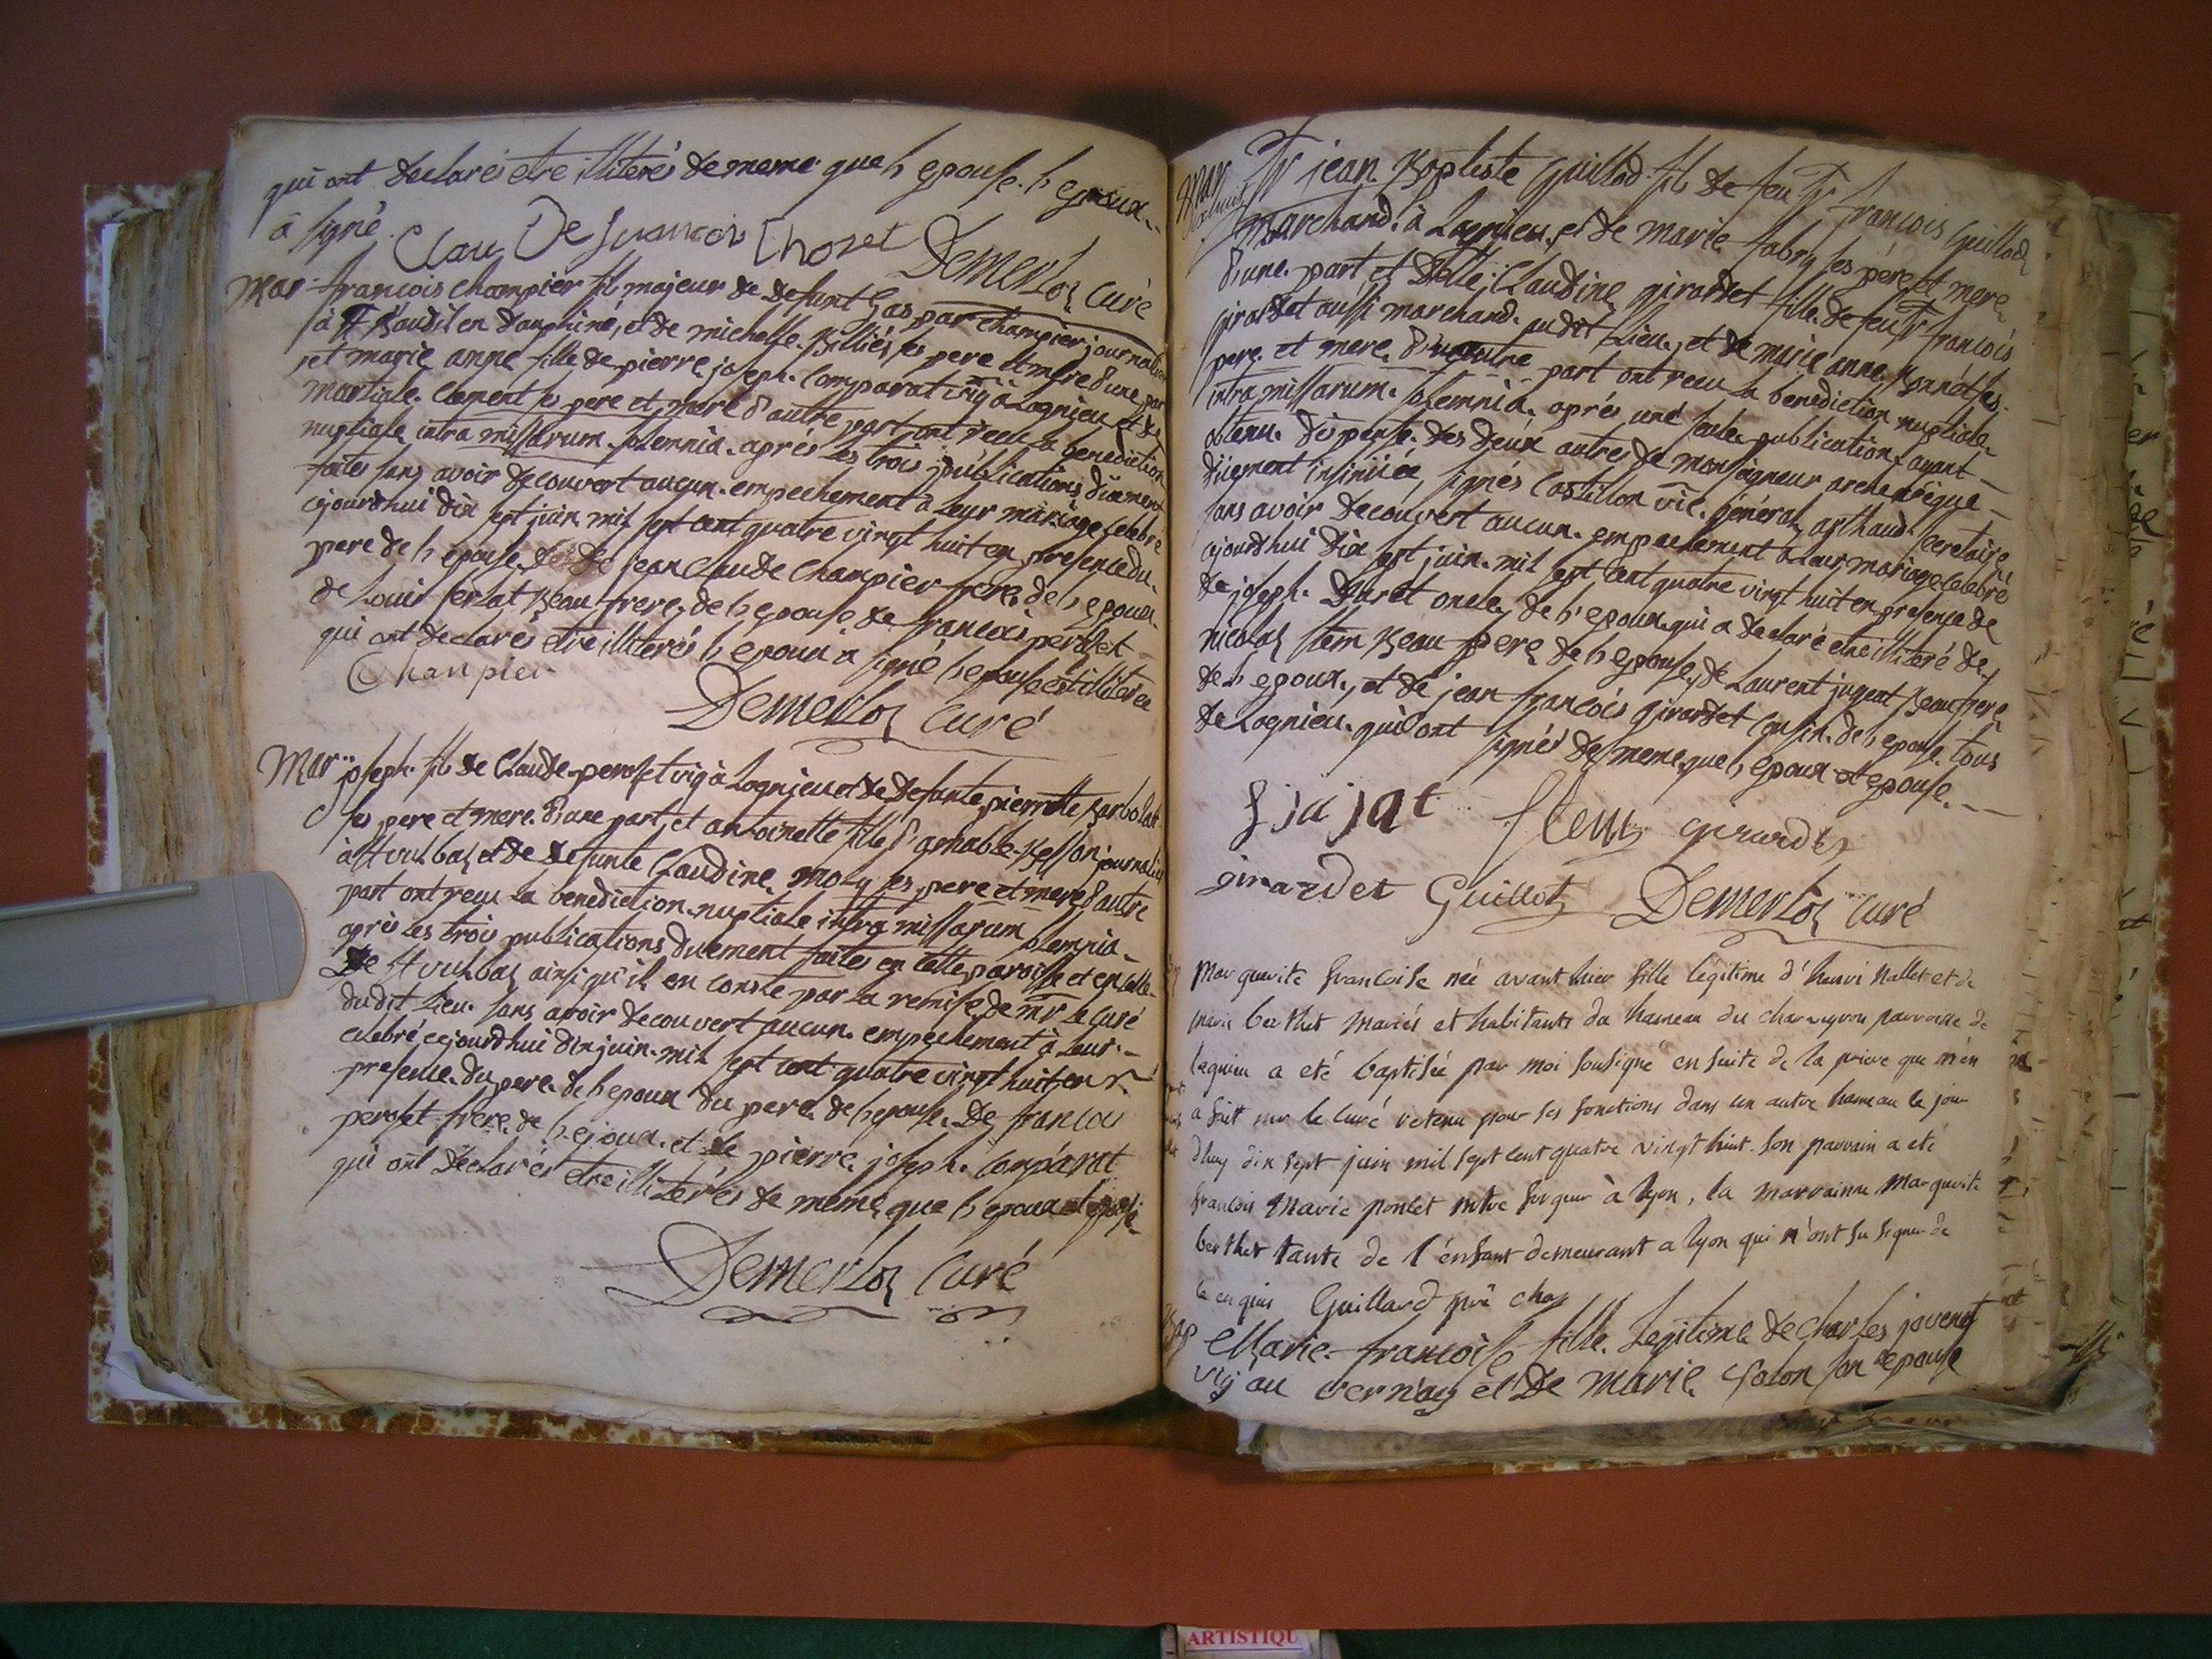 qui ont declarés etre illiterés de meme que l epouse. l epoux
a signé.
Clau De Chozet Demerloz curé
Mar francois champier fils majeur de defunt Gaspar champier journalier
à St Baudil en dauphiné, et de michelle Billiés ses pere et mere d'une part
et marie anne fille de pierre joseph Comparat vig à Lagnieu et de
martiale Clement ses pere et mere d'autre part ont recu la benediction
nuptiale intra missarum solemnia après les trois publications düement
faites sans avoir decouvert aucun empechement à leur mariage celebré
cejourdhui dix sept juin mil sept cent quatre vingt huit en presence du
pere de l epouse de jean claude champier frere de l epoux
de Louis serlat Beau frere de l epouse de francois peroset
qui ont declarés etre illiterés l epoux a signé l epouse est illiterée
Champier
Demerloz curé
Mar joseph fils de Claude peroset vig à Lagnieu et de defunte pierrette Barbolat
ses pere et mere d'une part, et antoinette fille d'aimable Besson journalier
à St vulbas et de defunte Claudine moly ses pere et mere d'autre
part ont recu la benediction nuptiale intra missarum solemnia
après les trois publications duement faites en cette paroisse et en celle
De St vulbas ainsi qu'il en conste par la remise de mr le curé
dudit lieu sans avoir decouvert aucun empechement à leur
celebré cejourdhui dix juin mil sept cent quatre vingt huit en
presence du pere de l epoux du pere de l epouse De francois
peroset frere de l epoux et de pierre joseph Comparat
qui ont declarés etre illiterés de meme que l epoux et epouse
Demerloz Curé
Mar Sr jean Baptiste Guillod fils de feu Sr francois Guillod
marchand à Lagnieu, et de marie fabry ses père et mere
d'une part et Delle Claudine girardet fille de feu Sr francois
girardet aussi marchand audit lieu, et de marie anne Bonnét ses
pere et mere d'autre part ont recu la benediction nuptiale
intra missarum solemnia après une seule publication ayant
obtenu dispense des deux autres de monseigneur archevêque
düement insinuée, signés Castillon vic. général, arthaud secretaire
sans avoir decouvert aucun empechement à leur mariage celebré
cejourdhui dix sept juin mil sept cent quatre vingt huit en presence de
de joseph Duret oncle de l'epoux qui a declaré etre illiteré de
nicolas stem Beau pere de l epouse, de Laurent jugeat Beau frere
de l epoux, et de jean francois girardet cousin de l epouse tous
de Lagnieu qui ont signés de meme que l epoux et epouse
stem girardet
girardet Guillot Demerloz curé
Marguerite francoise née avant hier fille legitime d'henri nallet et de
marie berthet mariés et habitants du hameau du charveyron parroisse de
lagnieu a eté baptisée par moi sousigné en suite de la priere que m'en
a fait mr le curé retenu pour ses fonctions dans un autre hameau le jour
dhuy dix sept juin mil sept cent quatre vingt huit. son parrain a eté
francois Marie poncet à lyon, la marrainne Marguerite
berthet tante de l'enfant demeurant a lyon qui n'ont su signer de
ce enquis Guillard
Bap Marie francoise fille legitime de Charles jovenet
vig au vernay et De Marie son epouse
ARTISTIQU